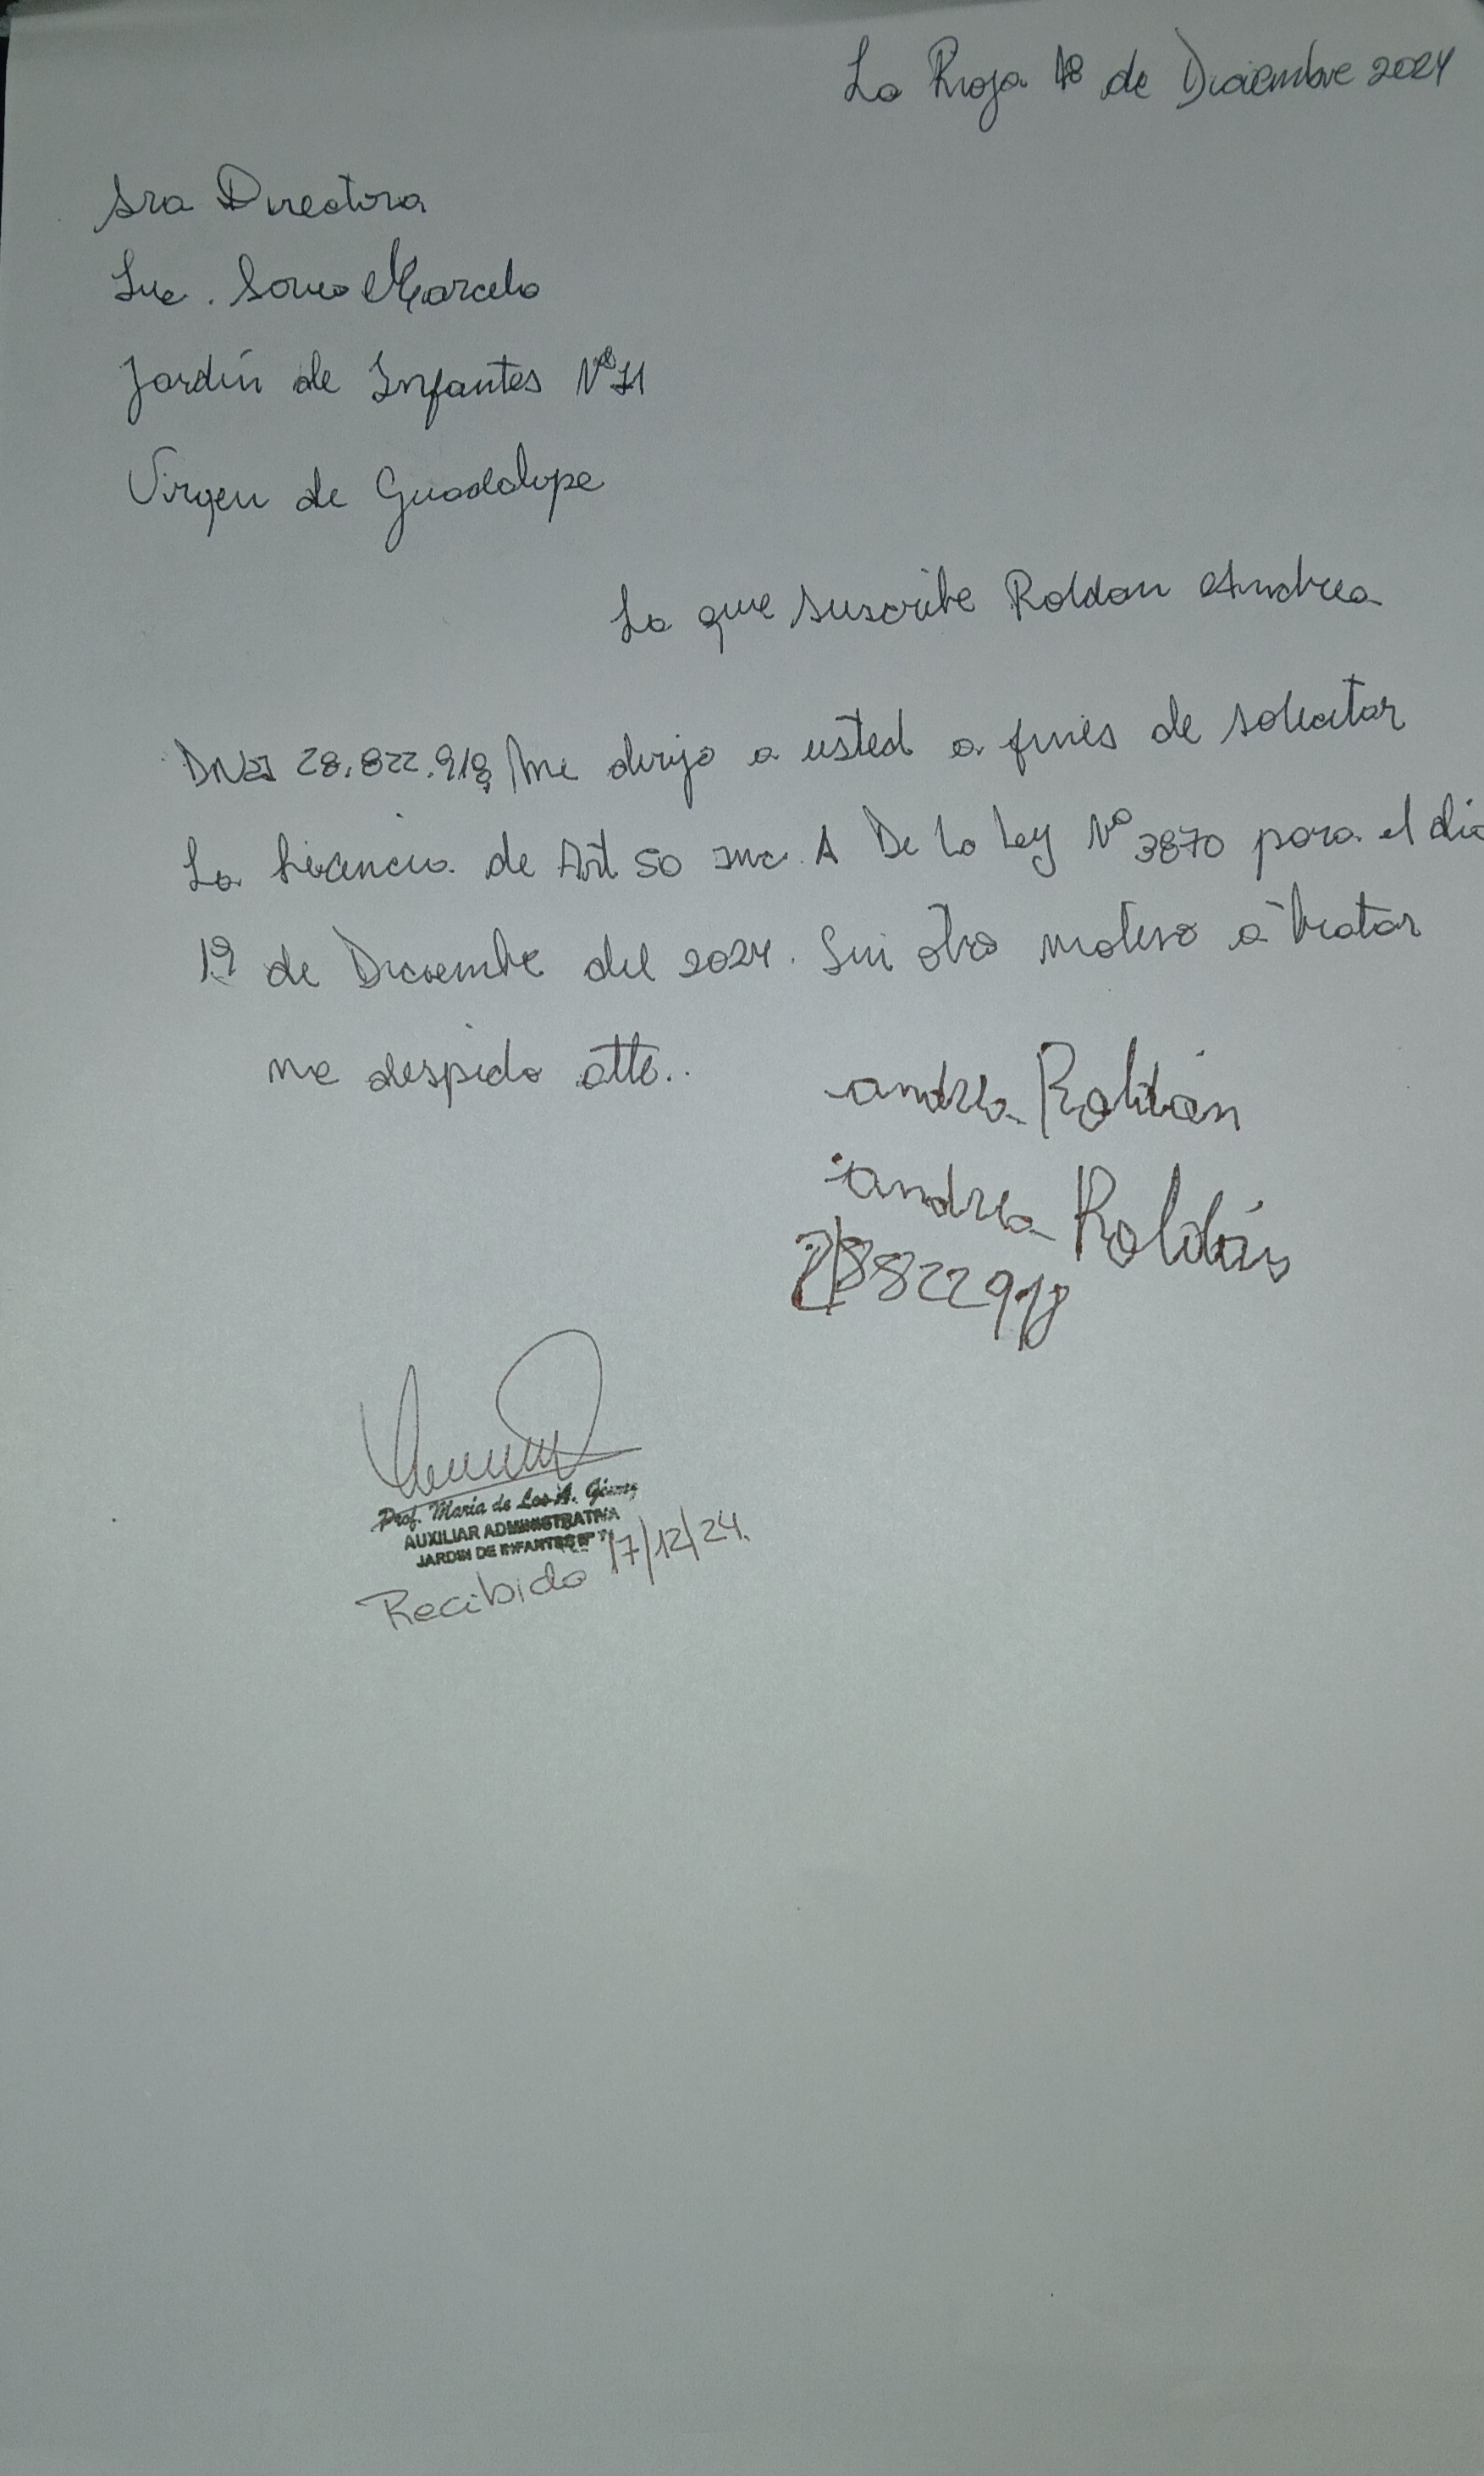 La Rioja 18 de Diciembre 2024
Sra Directora
Lic. Sonia Marcela
Jardín de Infantes Nº 71
Virgen de Guadalupe
La que suscribe Roldan Andrea
DNI 28.822.918 me dirijo a usted a fines de solicitar
La Licencia de Art 50 inc. A De La Ley Nº 3870 para el día
19 de Diciembre del 2024. Sin otro motivo a tratar
me despido atte..
andrea Roldán
andrea Roldán
28822918
Prof. María de Los A. Gómez
AUXILIAR ADMINISTRATIVA
JARDIN DE INFANTES Nº 71
Recibido 17/12/24.